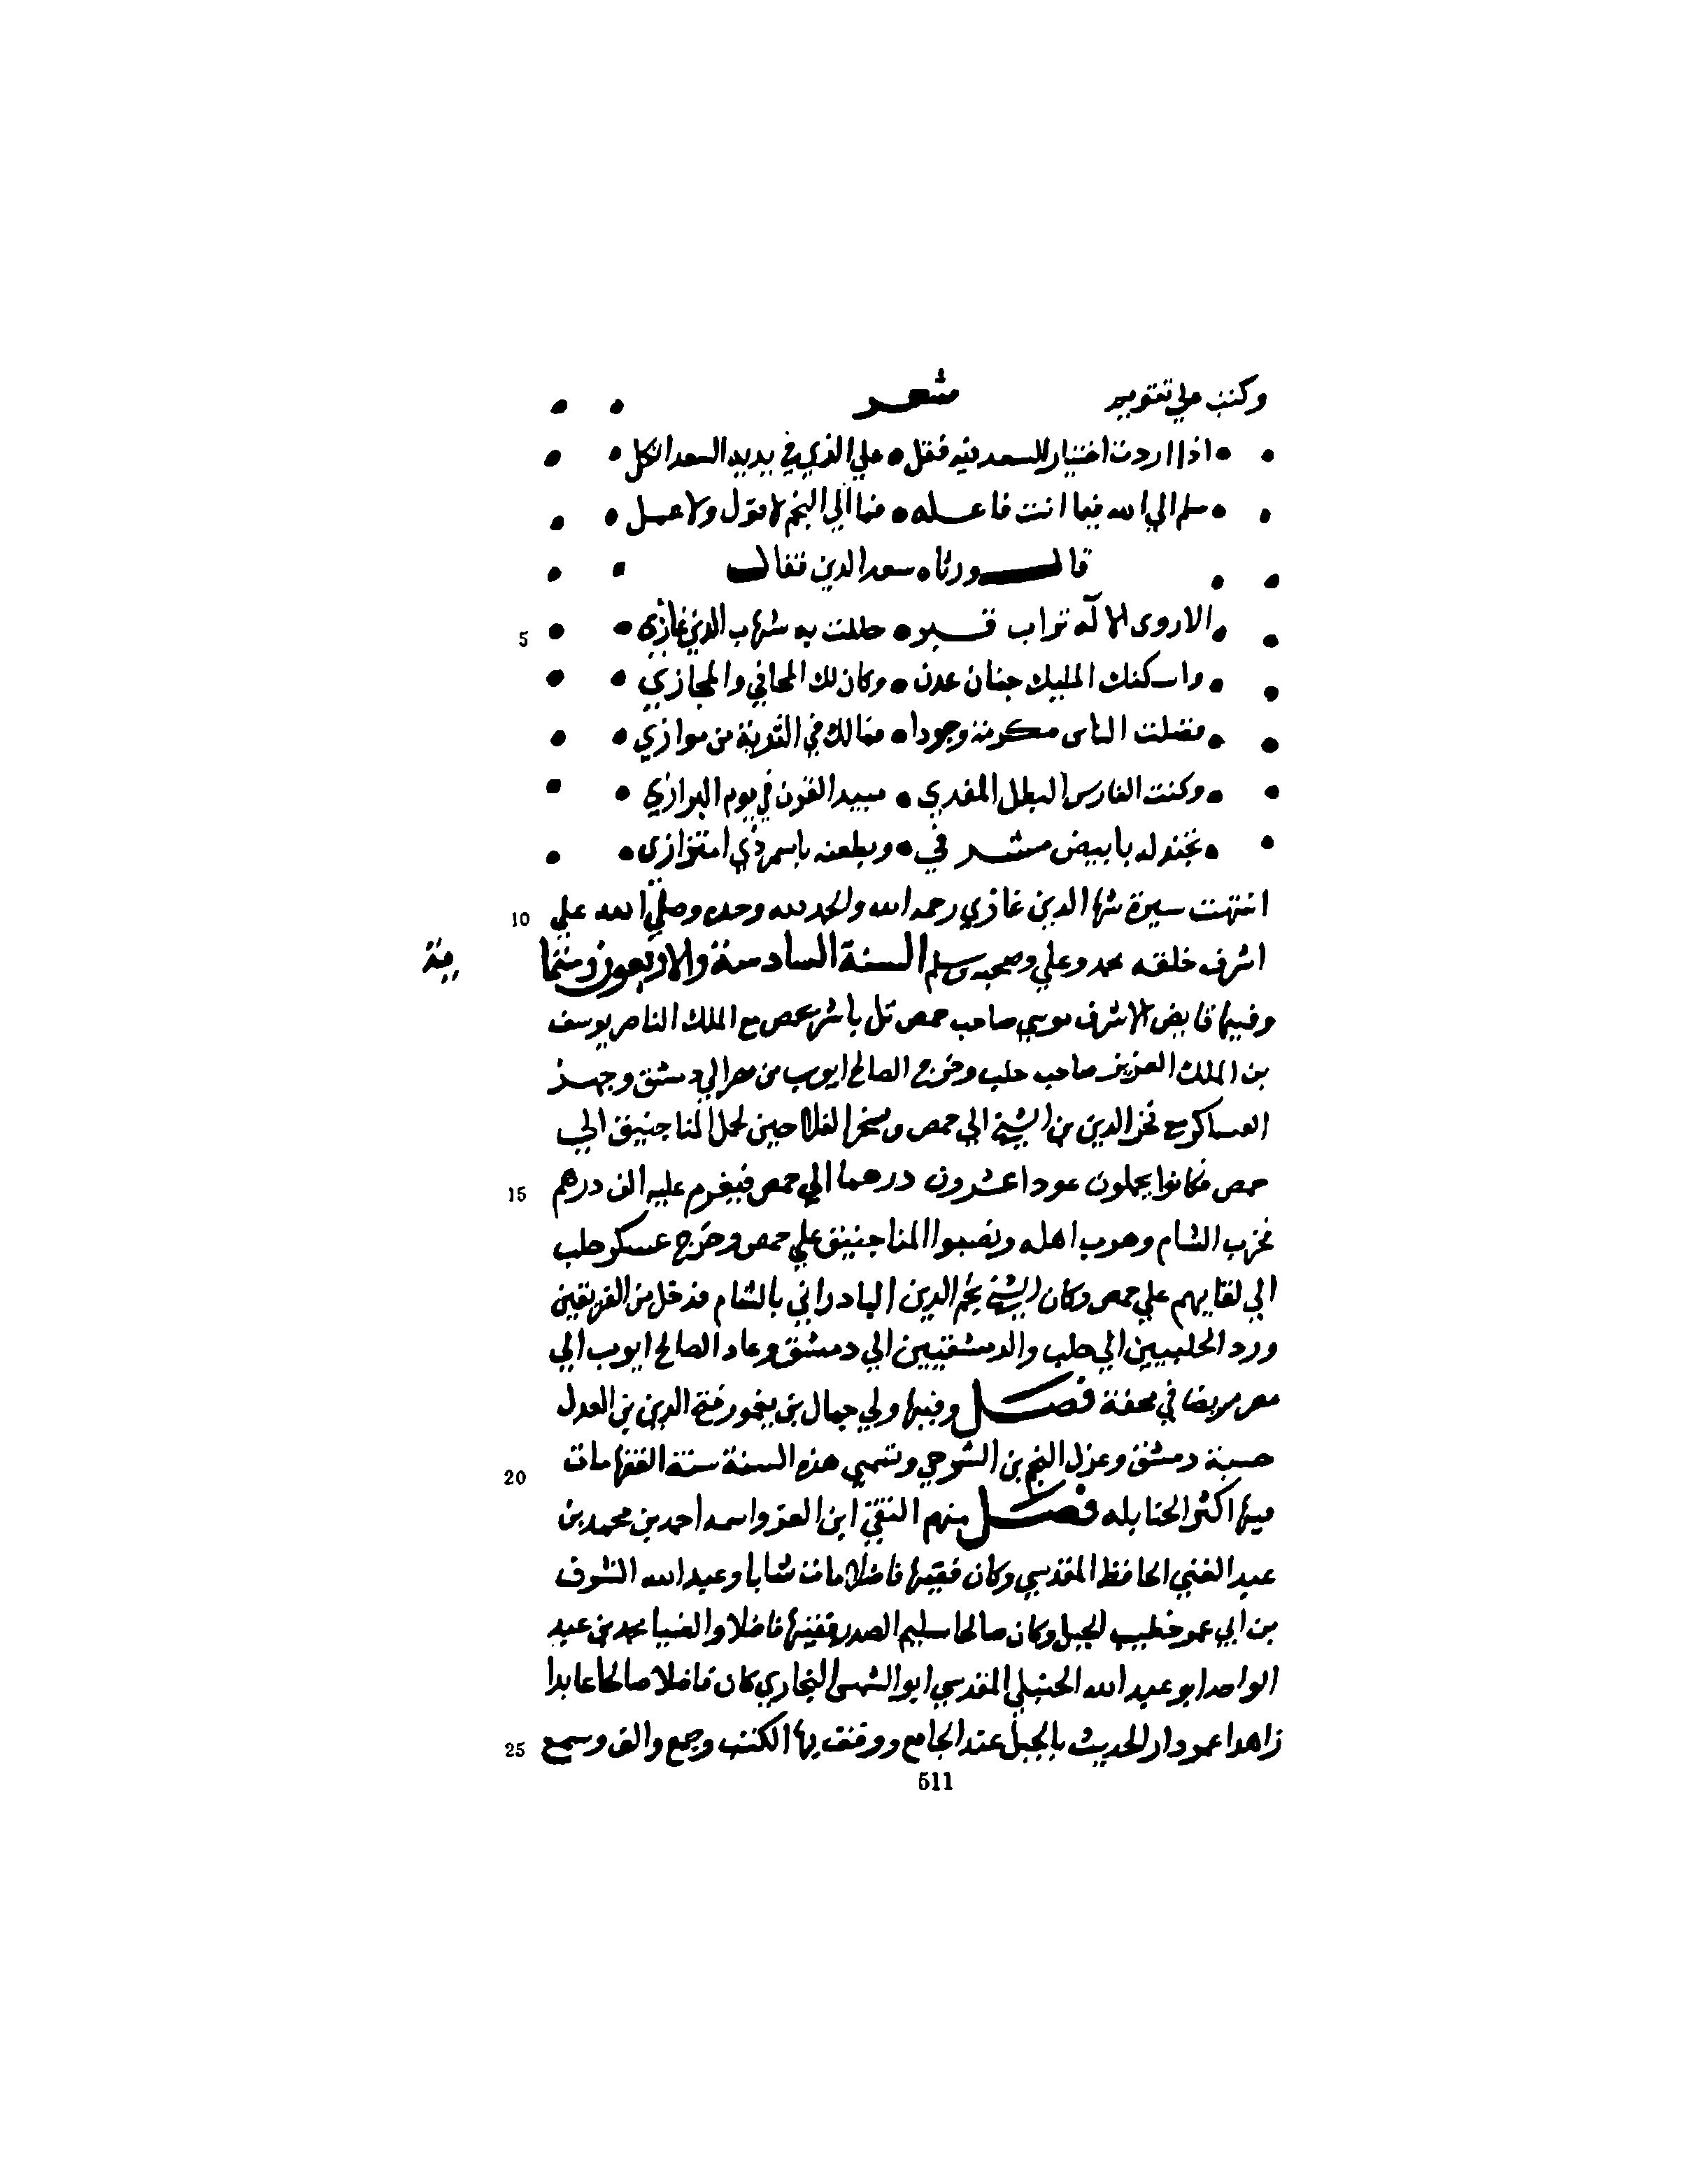 وكتب علي تقويم شعر
اذا اردت اختيار السعد فيه فقل علي الذي في يديه السعد اتكل
سلم الي الله فيما انت فاعله فما الي النجم لا قول ولا عمل
قال ورثاه سعد الدين فقال
الا روى الاله تراب قبر حللت به شهاب الدين غازي
واسكنك المليك جنان عدن وكان لك المحافي والمجازي
فضلت الناس مكرمة وجودا فمالك في البرية من موازي
وكنت الفارس البطل المفدي مبيد القرن في يوم البرازي
تجندله بابيض مشرفي وبطعنه باسمر ذي اهتزازى
انتهت سيرة شها الدين غازي رحمه الله والحمد لله وحده وصلي الله علي
اشرف خلقه محمد وعلي وصحبه وسلم السنة السادسة والاربعون وستما
ية
وفيها قايض الاشرف موسي صاحب حمص تل باشر بحمص مع الملك الناصر يوسف
بن الملك العزيز صاحب حلب وخرج الصالح ايوب من مصر الي دمشق وجهز
العساكر مع فخر الدين بن الشيخ الي حمص وسخر الفلاحين لحمل المناجنيق الي
حمص فكانوا يحملون عودا عشرون درهما الي حمص فيغرم عليه الف درهم
فخرب الشام وهرب اهله ونصبوا المناجنيق علي حمص وخرج عسكر حلب
الي لقايهم علي حمص وكان الشيخ نجم الدين البادراني بالشام فدخل من الفريقين
ورد الحلبيين الي حلب والدمشقيين الي دمشق وعاد الصالح ايوب الي
مصر مريضا في محفة فصل وفيها ولي جمال بن يغمور فتح الدين بن العدل
حسبة دمشق وعزل النجم بن الشرجي وتسمي هذه السنة سنة الفقها مات
فيها اكثر الحنابله فصل منهم التقي ابن العز واسمه احمد بن محمد بن
عبد الغني الحافظ المقدسي وكان فقيها فاضلا مات شابا وعبد الله الشرف
بن ابي عمر خطيب الجبل وكان صالحا سليم الصدر فقيها فاضلا والضيا محمد بن عبد
الواحد ابو عبد الله الحنبلي المقدسي ابو الشمس البخاري كان فاضلا صالحا عابدا
زاهدا عمر دار الحديث بالجبل عند الجامع ووقف بها الكتب وجمع والف وسمع
5
10
15
20
25
511